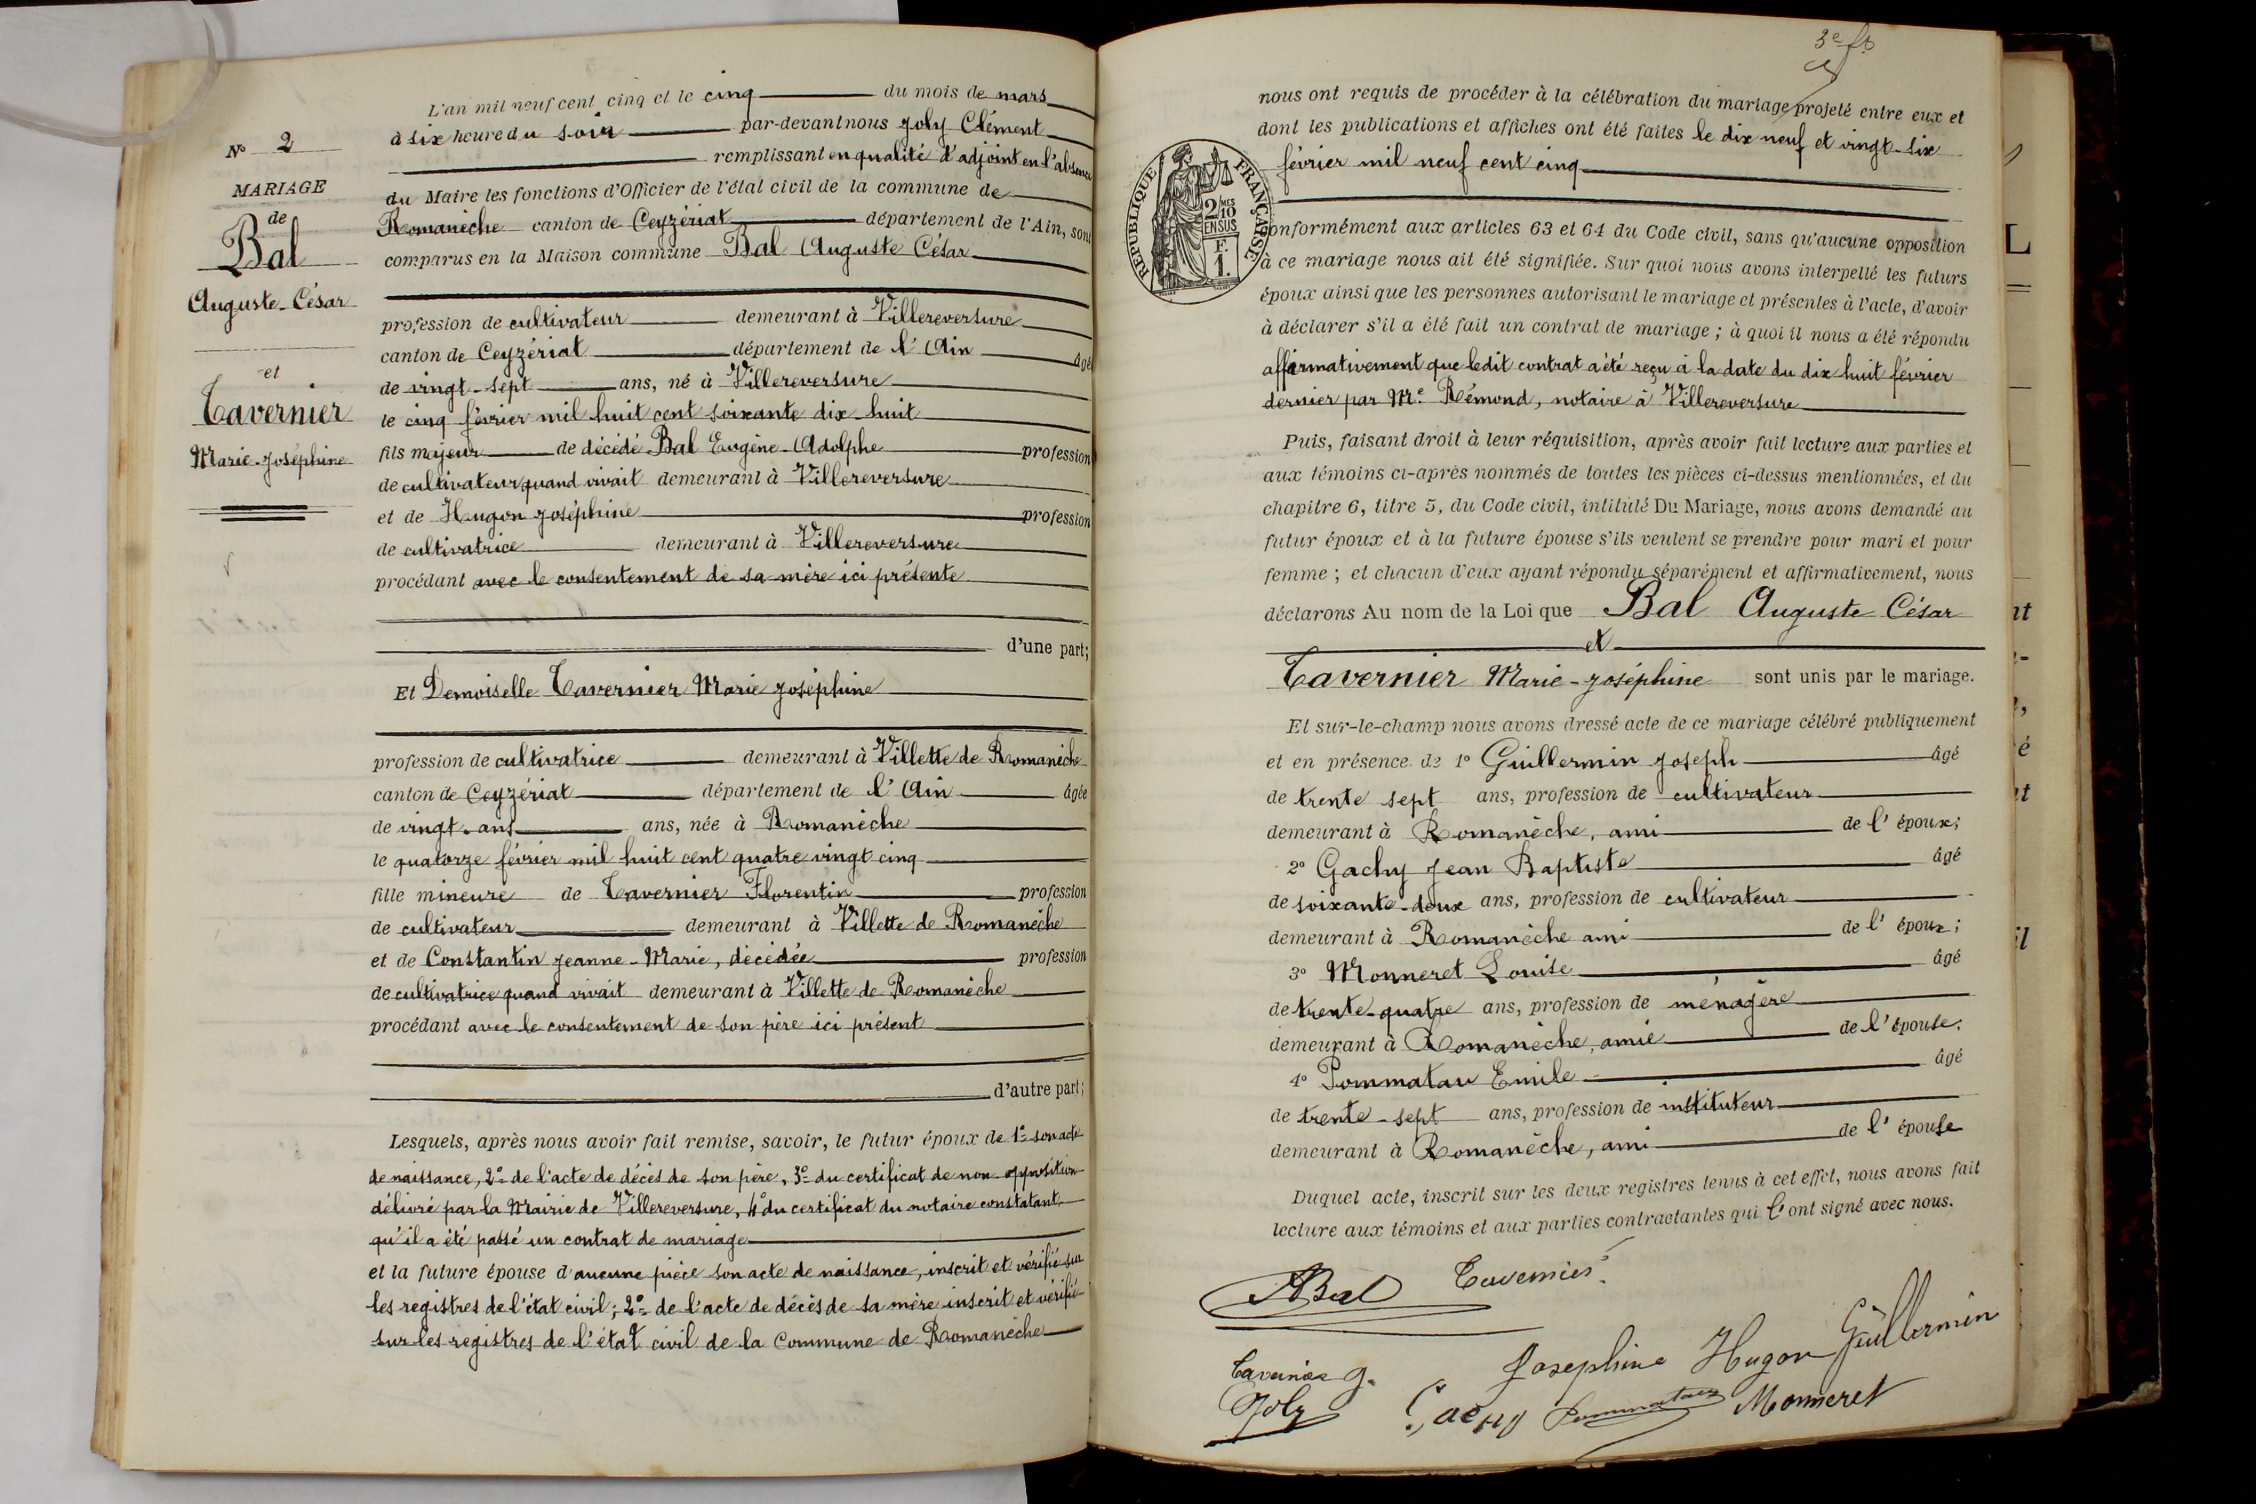 N° 2
MARIAGE
de
Bal
Auguste-César
et
Tavernier
Marie-Joséphine
L'an mil neuf cent cinq et le cinq du mois de mars
à six heure du soir par-devant nous Joly Clément
remplissant en qualité d'adjoint en l'absence
du Maire les fonctions d'Officier de l'état civil de la commune de
Romanèche canton de Ceyzériat département de l'Ain, sont
comparus en la Maison commune Bal Auguste César
profession de cultivateur demeurant à Villereversure
canton de Ceyzériat département de l'Ain âgé
de vingt-sept ans, né à Villereversure
le cinq février mil huit cent soixante dix-huit
fils majeur de décédé Bal Eugène-Adolphe profession
de cultivateur quand vivait demeurant à Villereversure
et de Hugon Joséphine profession
de cultivatrice demeurant à Villereversure
procédant avec le consentement de sa mère ici présente
d'une part;
Et Demoiselle Tavernier Marie Joséphine
profession de cultivatrice demeurant à Villette de Romanèche
canton de Ceyzériat département de l'Ain âgée
de vingt-ans ans, née à Romanèche
le quatorze février mil huit cent quatre vingt cinq
fille mineure de Tavernier Florentin profession
de cultivateur demeurant à Villette de Romanèche
et de Constantin Jeanne-Marie, décédée profession
de cultivatrice quand vivait demeurant à Villette de Romanèche
procédant avec le consentement de son père ici présent
d'autre part;
Lesquels, après nous avoir fait remise, savoir, le futur époux de 1° son acte
de naissance, 2° de l'acte de décès de son père, 3° du certificat de non-opposition
délivré par la Mairie de Villereversure, 4° du certificat du notaire constatant
qu'il a été passé un contrat de mariage
et la future épouse d'aucune pièce son acte de naissance, inscrit et vérifié sur
les registres de l'état civil; 2° de l'acte de décès de sa mère inscrit et vérifié
sur les registres de l'état civil de la Commune de Romanèche
nous ont requis de procéder à la célébration du mariage projeté entre eux et
dont les publications et affiches ont été faites le dix neuf et vingt-six
février mil neuf cent cinq
RÉPUBLIQUE FRANÇAISE
2/10 MES
EN SUS
F.
1.
onformément aux articles 63 et 64 du Code civil, sans qu'aucune opposition
à ce mariage nous ait été signifiée. Sur quoi nous avons interpellé les futurs
époux ainsi que les personnes autorisant le mariage et présentes à l'acte, d'avoir
à déclarer s'il a été fait un contrat de mariage; à quoi il nous a été répondu
affirmativement que ledit contrat a été reçu à la date du dix huit février
dernier par Me Rémond, notaire à Villereversure
Puis, faisant droit à leur réquisition, après avoir fait lecture aux parties et
aux témoins ci-après nommés de toutes les pièces ci-dessus mentionnées, et du
chapitre 6, titre 5, du Code civil, intitulé Du Mariage, nous avons demandé au
futur époux et à la future épouse s'ils veulent se prendre pour mari et pour
femme; et chacun d'eux ayant répondu séparément et affirmativement, nous
déclarons Au nom de la Loi que Bal Auguste César
et
Tavernier Marie-Joséphine sont unis par le mariage.
Et sur-le-champ nous avons dressé acte de ce mariage célébré publiquement
et en présence de 1° Guillermin Joseph âgé
de trente sept ans, profession de cultivateur
demeurant à Romanèche, ami de l'époux;
2° Gachy Jean Baptiste âgé
de soixante-deux ans, profession de cultivateur
demeurant à Romanèche ami de l'époux;
3° Monneret Louise âgé
de trente-quatre ans, profession de ménagère
demeurant à Romanèche, amie de l'épouse;
4° Pommatau Emile âgé
de trente-sept ans, profession de instituteur
demeurant à Romanèche, ami de l'épouse
Duquel acte, inscrit sur les deux registres tenus à cet effet, nous avons fait
lecture aux témoins et aux parties contractantes qui l'ont signé avec nous.
ABal Tavernier
Josephine Hugon Guillermin
Tavernier J.
Joly Gachy Pommatau Monneret